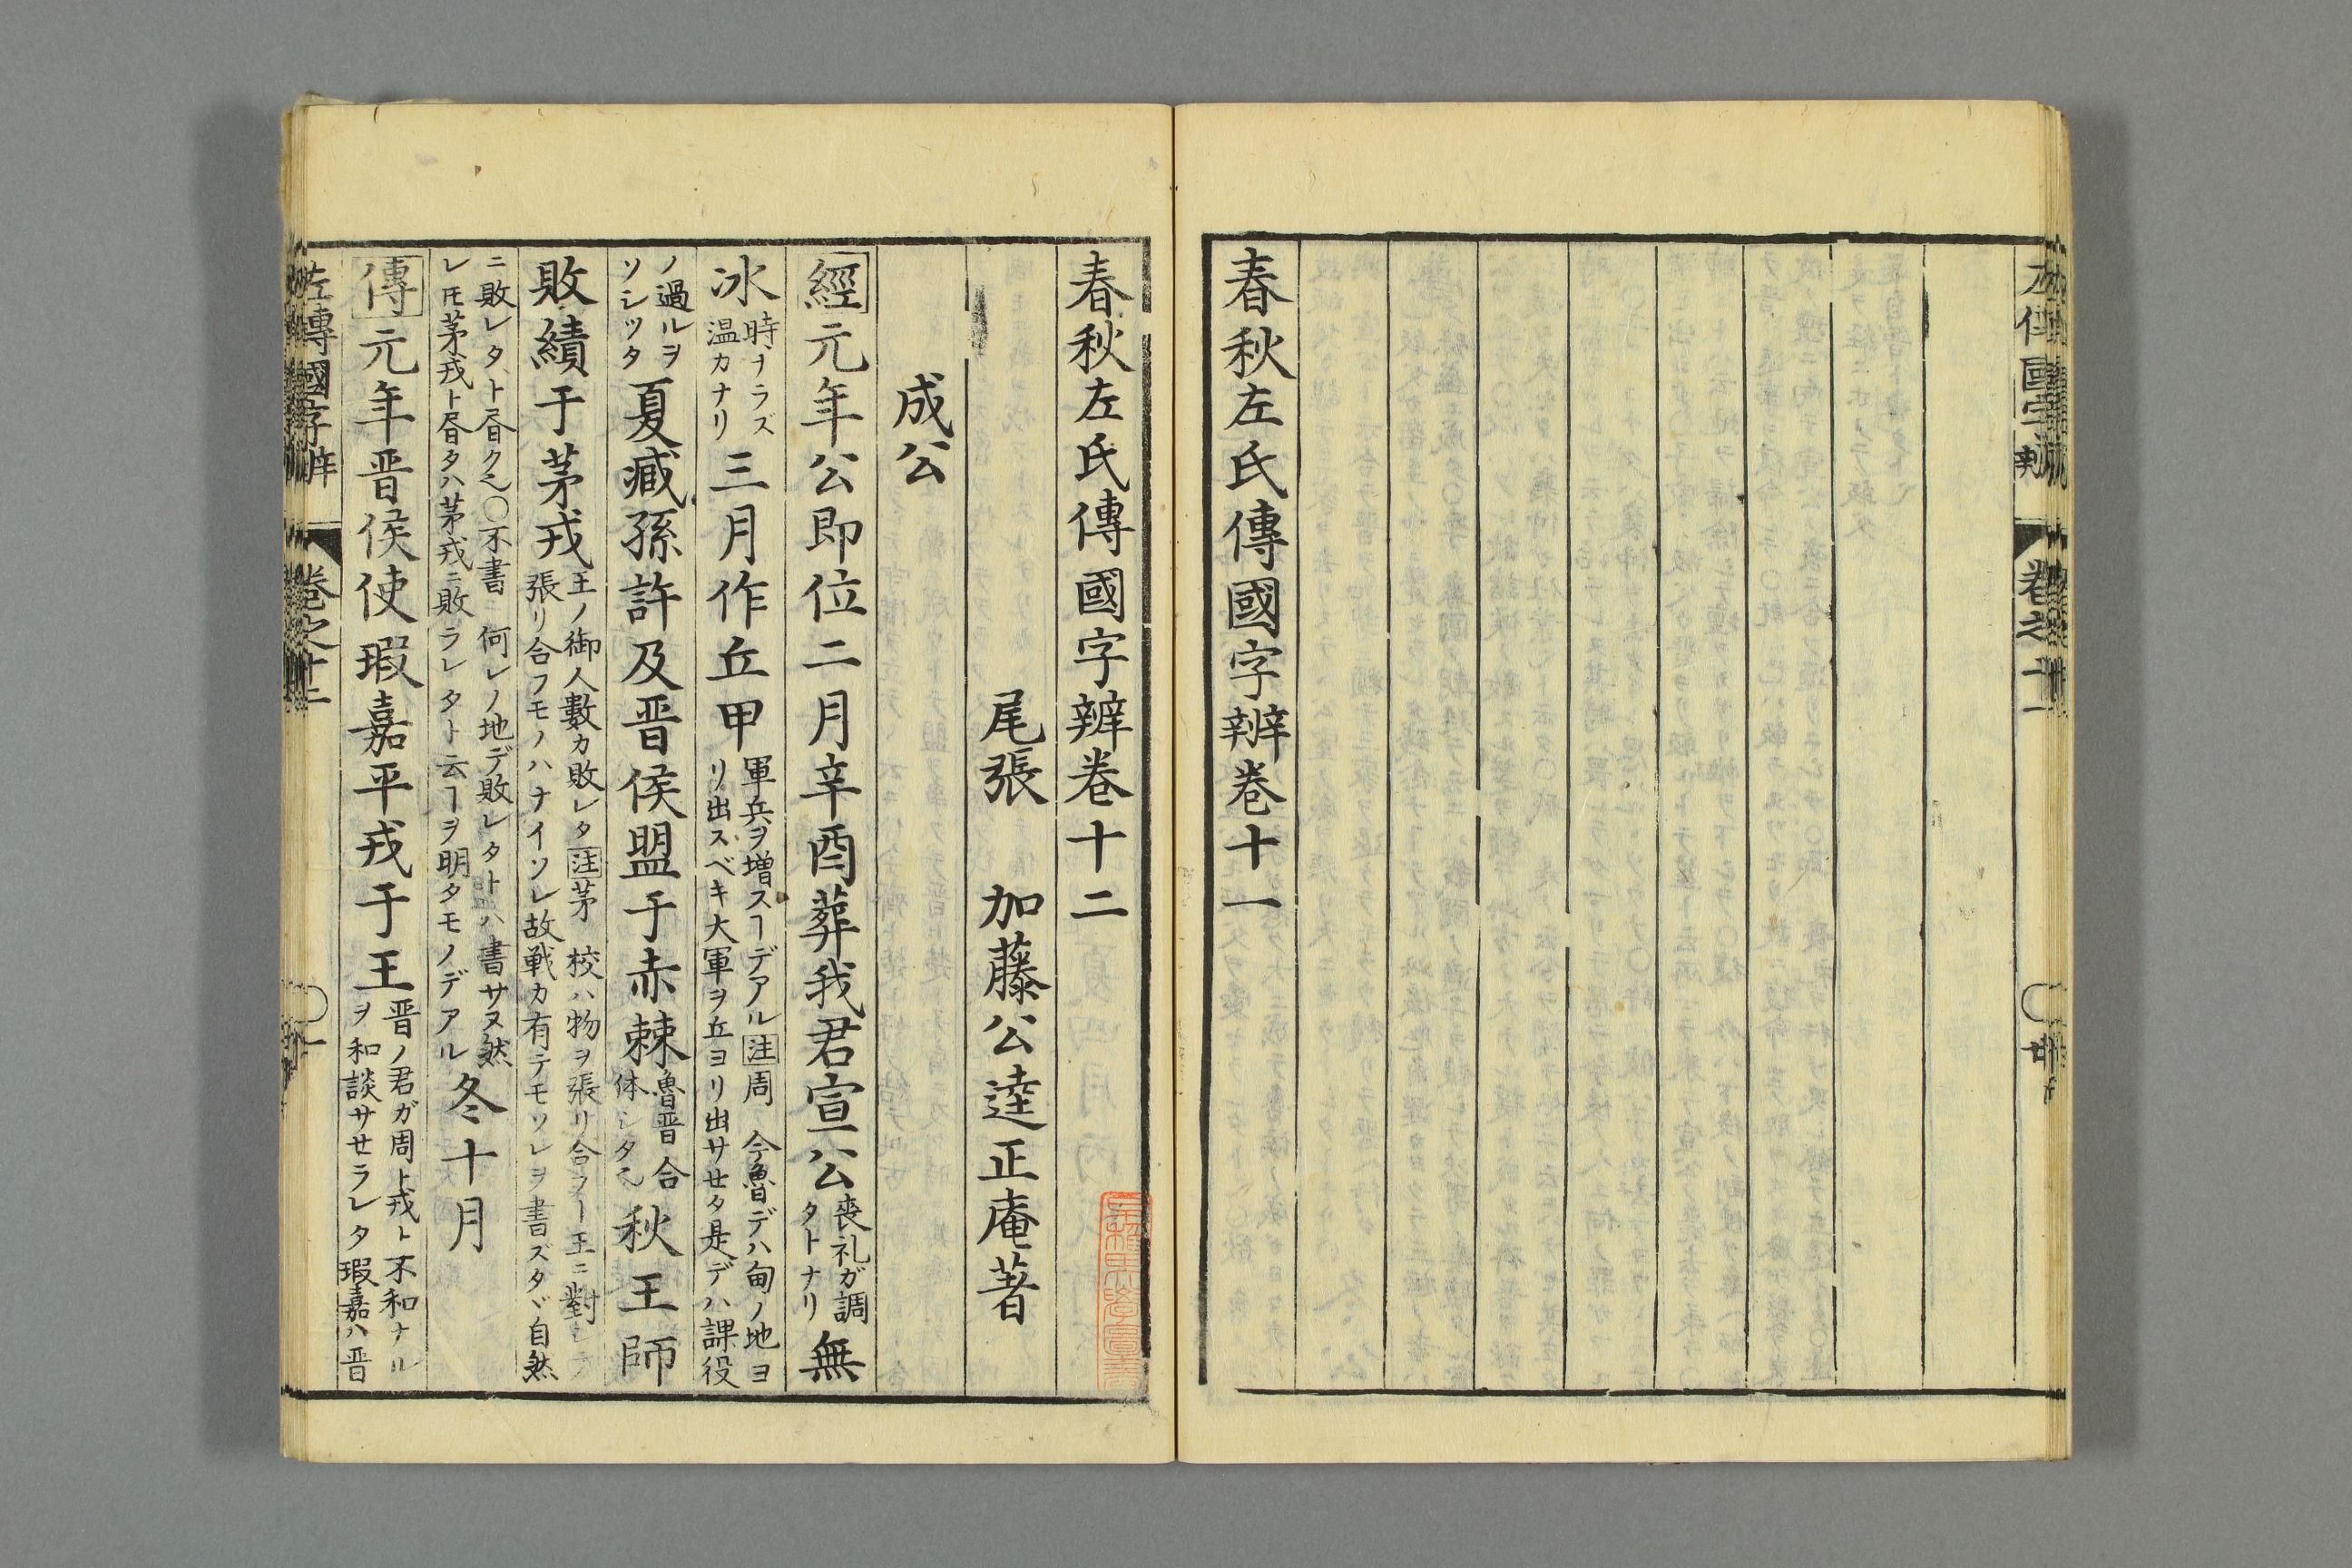 春秋左氏傳國字辨卷十一
春秋左氏傳國字辨卷十二
尾張　加藤公逵正庵著
成公
經元年公即位二月辛酉葬我君宣公
喪礼ガ調
タトナリ
無
冰
時ナラズ
温カナリ
三月作丘甲
軍兵ヲ増スヿデアル注周　今魯デハ甸ノ地ヨ
リ出スベキ大軍ヲ丘ヨリ出サセタ是デハ課役
ノ過ルヲ
ソシツタ
夏臧孫許及晋侯盟于赤棘
魯晋合
体シタ
秋王師
敗績于茅戎
王ノ御人數カ敗レタ注茅　校ハ物ヲ張リ合フヿ王ニ對シテ
張リ合フモノハナイソレ故戦カ有テモソレヲ書ズタヾ自然
ニ敗レタト昏ク〇不書　何レノ地デ敗レタトハ書サヌ然
レ𪜈茅戎ト昏タハ茅戎ニ敗ラレタト云ヿヲ明タモノデアル
冬十月
傳元年晋侯使瑕嘉平戎于王
晋ノ君ガ周ト戎ト不和ナル
ヲ和談サセラレタ瑕嘉ハ晋
左傳國字辨　卷之十二